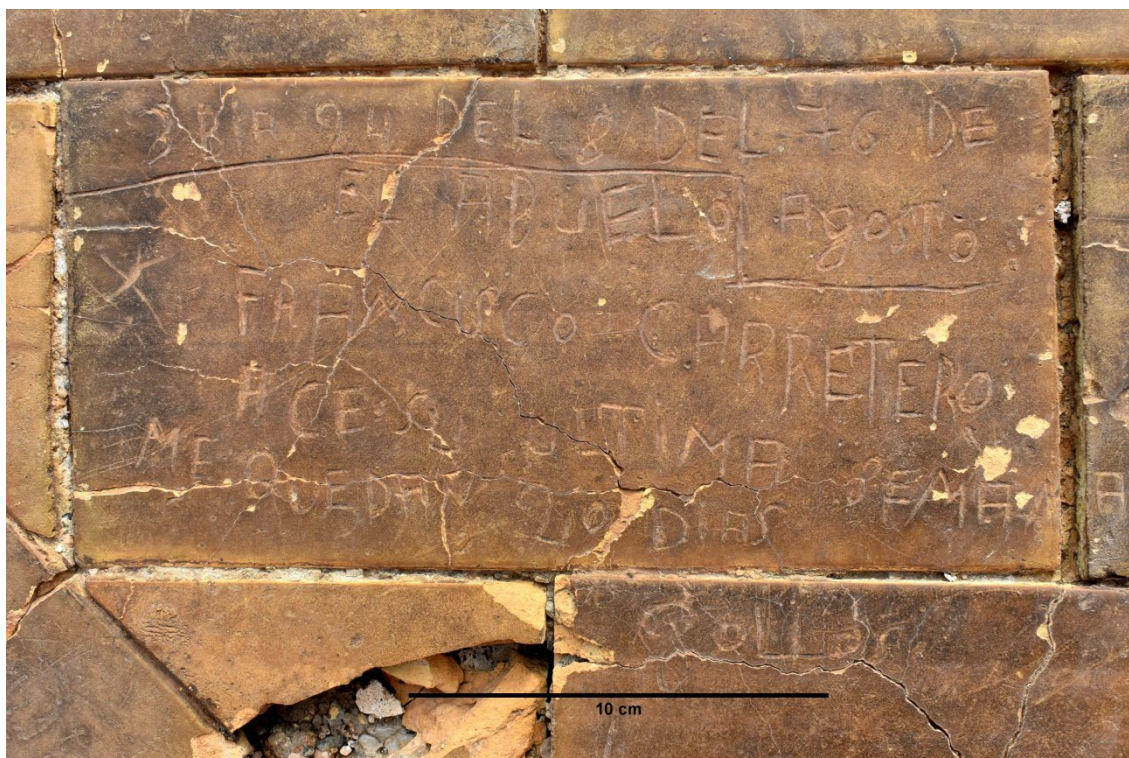 3 BIR 94 DEL 8 DEL 76 DE
EL ABUELO Agosto
FRANCISCO CARRETERO
ACESO ULTIMA SEMANA
ME QUEDAN 210 DIAS
10 cm